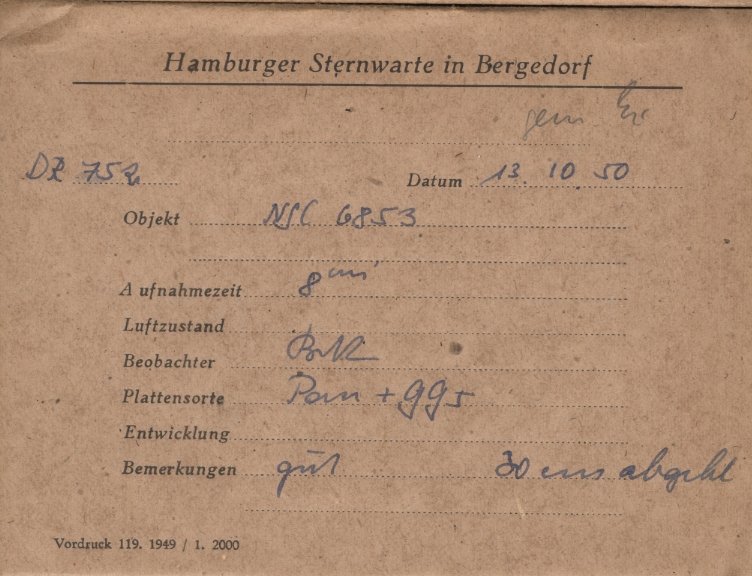 Hamburger Sternwarte in Bergedorf
gem
DR 752 Datum 13. 10 50
Objekt NGC 6853
Aufnahmezeit 8 min
Luftzustand
Beobachter
Plattensorte Pan + GG5
Entwicklung
Bemerkungen gut 30 cm abgebl
Vordruck 119. 1949 / 1. 2000